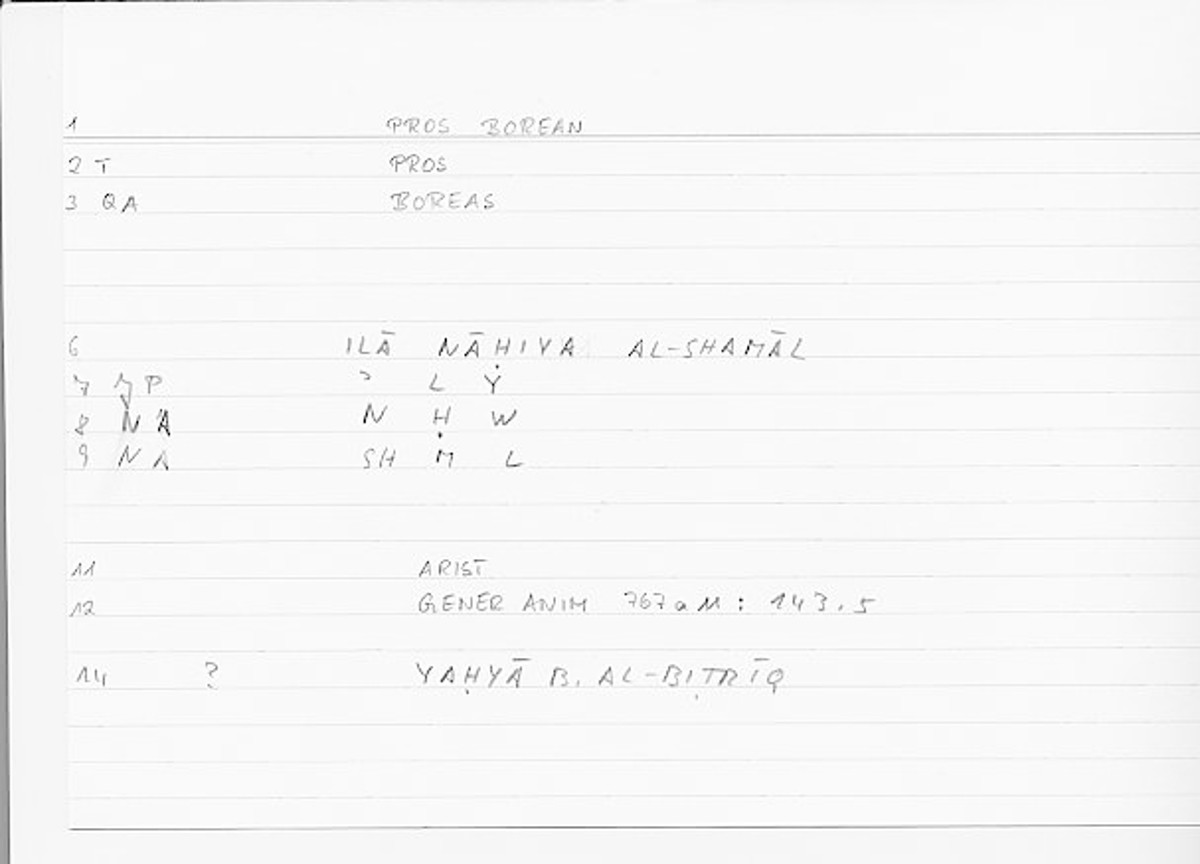 1 PROS BOREAN
2 T PROS
3 QA BOREAS
6 ILĀ NĀḤIYA AL-SHAMĀL
7 P ʾ L Y
8 NA N Ḥ W
9 NA SH M L
11 ARIST
12 GENER ANIM 767a11 : 143.5
14 ? YAḤYĀ B. AL-BIṬRĪQ